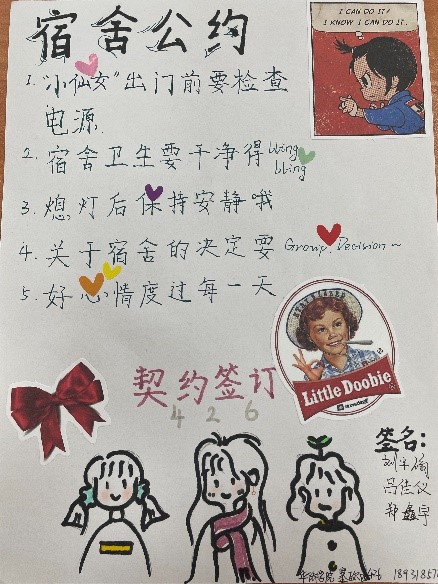 宿舍公约
I CAN DO IT!
I KNOW I CAN DO IT.
1. "小仙女"出门前要检查
电源.
2. 宿舍卫生要干净得bling
bling
3. 熄灯后保持安静哦
4. 关于宿舍的决定要 Group Decision~
5. 好心情度过每一天
Little Doobie
契约签订
426
签名: